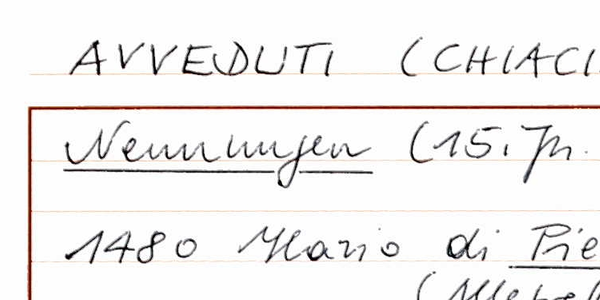 AVVEDUTI (CHIACI
Nennungen (15. Jh.
1480 Mario di Pie